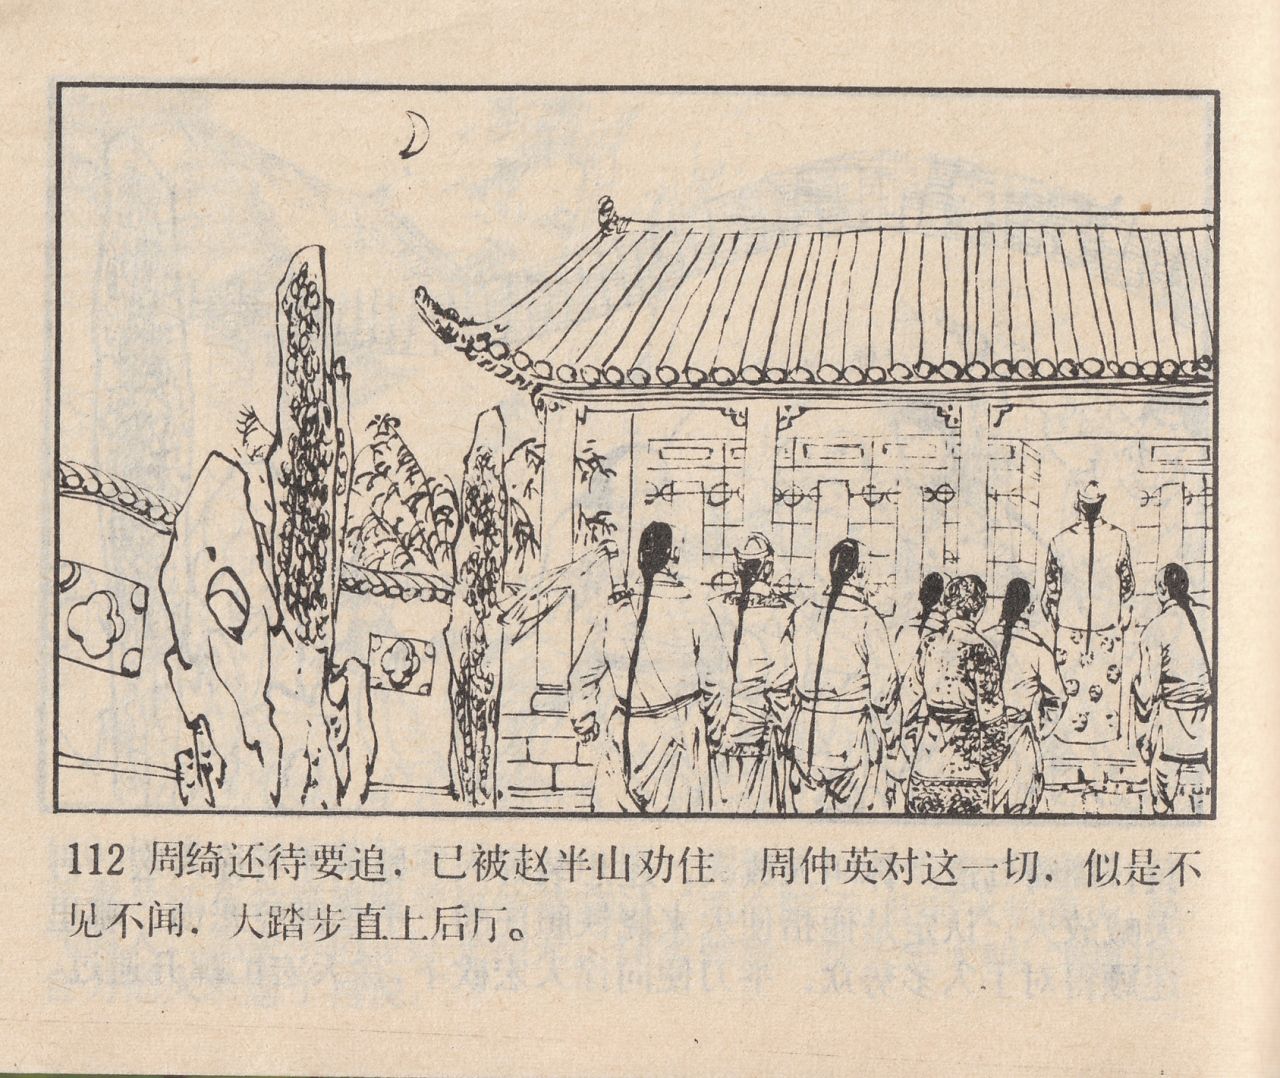 112 周绮还待要追，已被赵半山劝住 周仲英对这一切，似是不
见不闻，大踏步直上后厅。